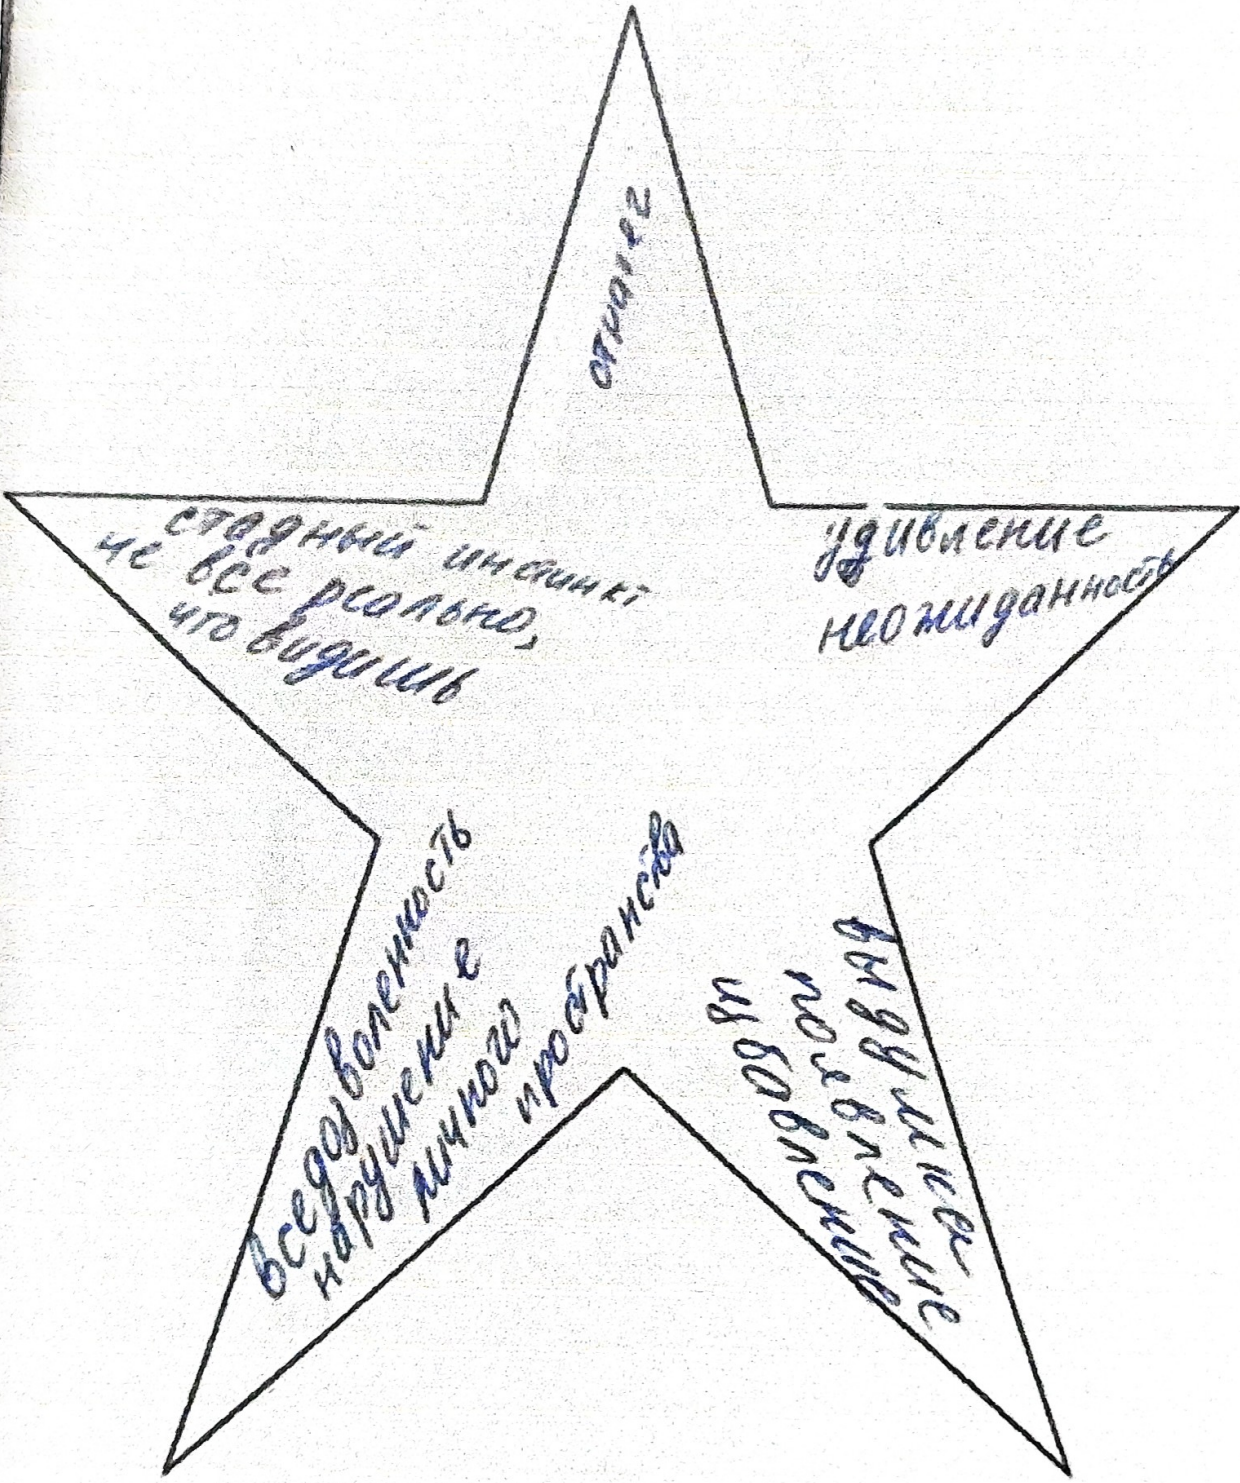 стадный инстинкт
не все реально,
что видишь
удивление
неожиданность
вседозволенность
нарушение
личного
пространства
выдумка
появление
избавление